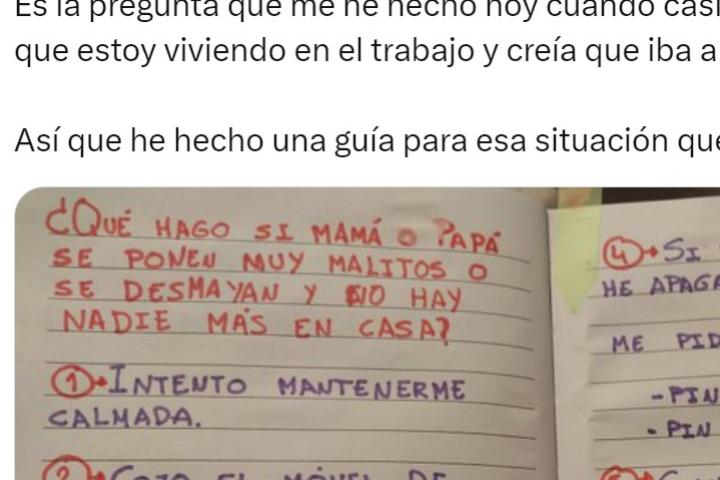 Es la pregunta que me he hecho hoy cuando casi
que estoy viviendo en el trabajo y creía que iba a
Así que he hecho una guía para esa situación que
¿QUÉ HAGO SI MAMÁ O PAPÁ
SE PONEN MUY MALITOS O
SE DESMAYAN Y NO HAY
NADIE MÁS EN CASA?
1 INTENTO MANTENERME
CALMADA.
2 COJO EL MÓVIL DE
4 SI
HE APAGA
ME PID
-PIN
-PIN